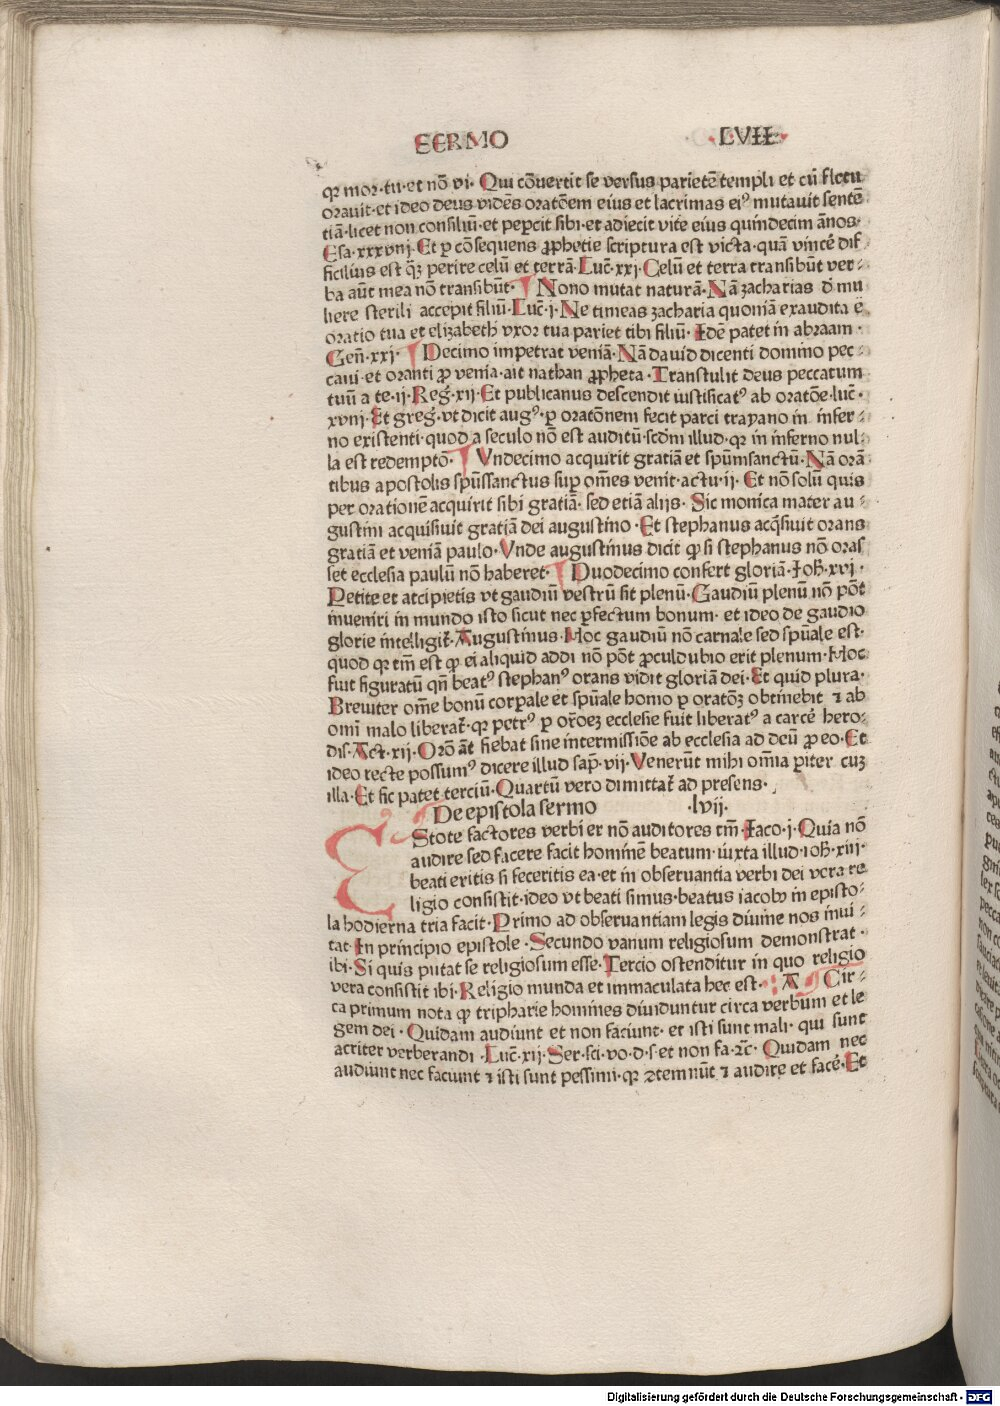 EERMO LVII
qꝛ mor·tu·et nō vi· Qui cōuertit se versus parietē templi et cū fletu
orauit·et ideo deus vidēs oratōem eius et lacrimas eiꝰ mutauit sentē
tiā·licet non consiliū·et peꝑcit sibi·et adiecit vite eius quindecim ānos·
Esa·xxxvıij·Et ꝑ cōsequens ꝓphetie scriptura est victa·quā vincē dif
ficilius est q̄ꝫ perire celū et terrā·Luc̄·xxj·Celū et terra transibūt ver⸗
ba aūt mea nō transibūt· Nono mutat naturā·Nā zacharias d̄ mu
liere sterili accepit filiū·Luc̄·j·Ne timeas zacharia quoniā exaudita ē
oratio tua et elizabeth vxor tua pariet tibi filiū· Idē patet in abraam·
Gen̄·xxj· Decimo impetrat veniā·Nā dauid dicenti domino pec⸗
caui·et oranti ꝓ venia·ait nathan ꝓpheta·Transtulit deus peccatum
tuū a te·ij·Reg̃·xij·Et publicanus descendit iustificatꝰ ab oratōe·luc̄·
xviij·Et greg̃·vt dicit augꝰ·ꝑ oratōnem fecit parci trayano in infer⸗
no existenti·quod a seculo nō est auditū·scdm illud·qꝛ in inferno nul⸗
la est redemptō· Vndecimo acquirit gratiā et spūmsanctū·Nā orā
tibus apostolis spūssanctus suꝑ om̄es venit·actu·ij· Et nō solū quis
per orationē acquirit sibi gratiā·sed etiā alijs· Sic monica mater au⸗
gustini acquisiuit gratiā dei augustino·Et stephanus acq̄siuit orans
gratiā et veniā paulo·Vnde augustinus dicit ꝙ si stephanus nō oras
set ecclesia paulū nō haberet· Duodecimo confert gloriā·Joh̄·xvj·
Petite et accipietis vt gaudiū vestrū sit plenū·Gaudiū plenū nō pōt
inueniri in mundo isto sicut nec ꝑfectum bonum· et ideo de gaudio
glorie intelligit̄·Augustinus·Hoc gaudiū nō carnale sed spūale est·
quod qꝛ tm̄ est ꝙ ei aliquid addi nō pōt ꝓculdubio erit plenum·Hoc
fuit figuratū qn̄ beatꝰ stephanꝰ orans vidit gloriā dei·Et quid plura·
Breuiter om̄e bonū corꝑale et spūale homo ꝑ oratōꝫ obtinebit ⁊ ab
om̄i malo liberat̄·qꝛ petrꝰ ꝑ or̄oeꝫ ecclesie fuit liberatꝰ a carcē hero⸗
dis·Act̄·xij·Orō āt fiebat sine intermissiōe ab ecclesia ad deū ꝓ eo·Et
ideo recte possumꝰ dicere illud sap̄·vij·Venerūt mihi om̄ia ꝑiter cuꝫ
illa·Et sic patet terciū·Quartū vero dimittat̄ ad presens·
De epistola sermo ·lvij·
EStote factores verbi er nō auditores tm̄·Jaco·j·Quia nō
audire sed facere facit hominē beatum·iuxta illud·ioh̄·xiij·
beati eritis si feceritis ea·et in obseruantia verbi dei vera re
ligio consistit·ideo vt beati simus·beatus iacobꝰ in episto⸗
la hodierna tria facit·Primo ad obseruantiam legis diuine nos inui⸗
tat·In principio epistole·Secundo vanum religiosum demonstrat·
ibi·Si quis putat se religiosum esse·Tercio ostenditur in quo religio
vera consistit ibi·Religio munda et immaculata hec est· A Cir⸗
ca primum nota ꝙ tripharie homines diuiduntur circa verbum et le
gem dei· Quidam audiunt et non faciunt· et isti sunt mali· qui sunt
acriter verberandi·Luc̄·xij·Ser·sci·vo·d·s·et non fa·⁊c̄· Quidam nec
audiunt nec faciunt ⁊ isti sunt pessimi·qꝛ ↄtemnūt ⁊ audire et facē·Et
Digitalisierung gefördert durch die Deutsche Forschungsgemeinschaft - DFG